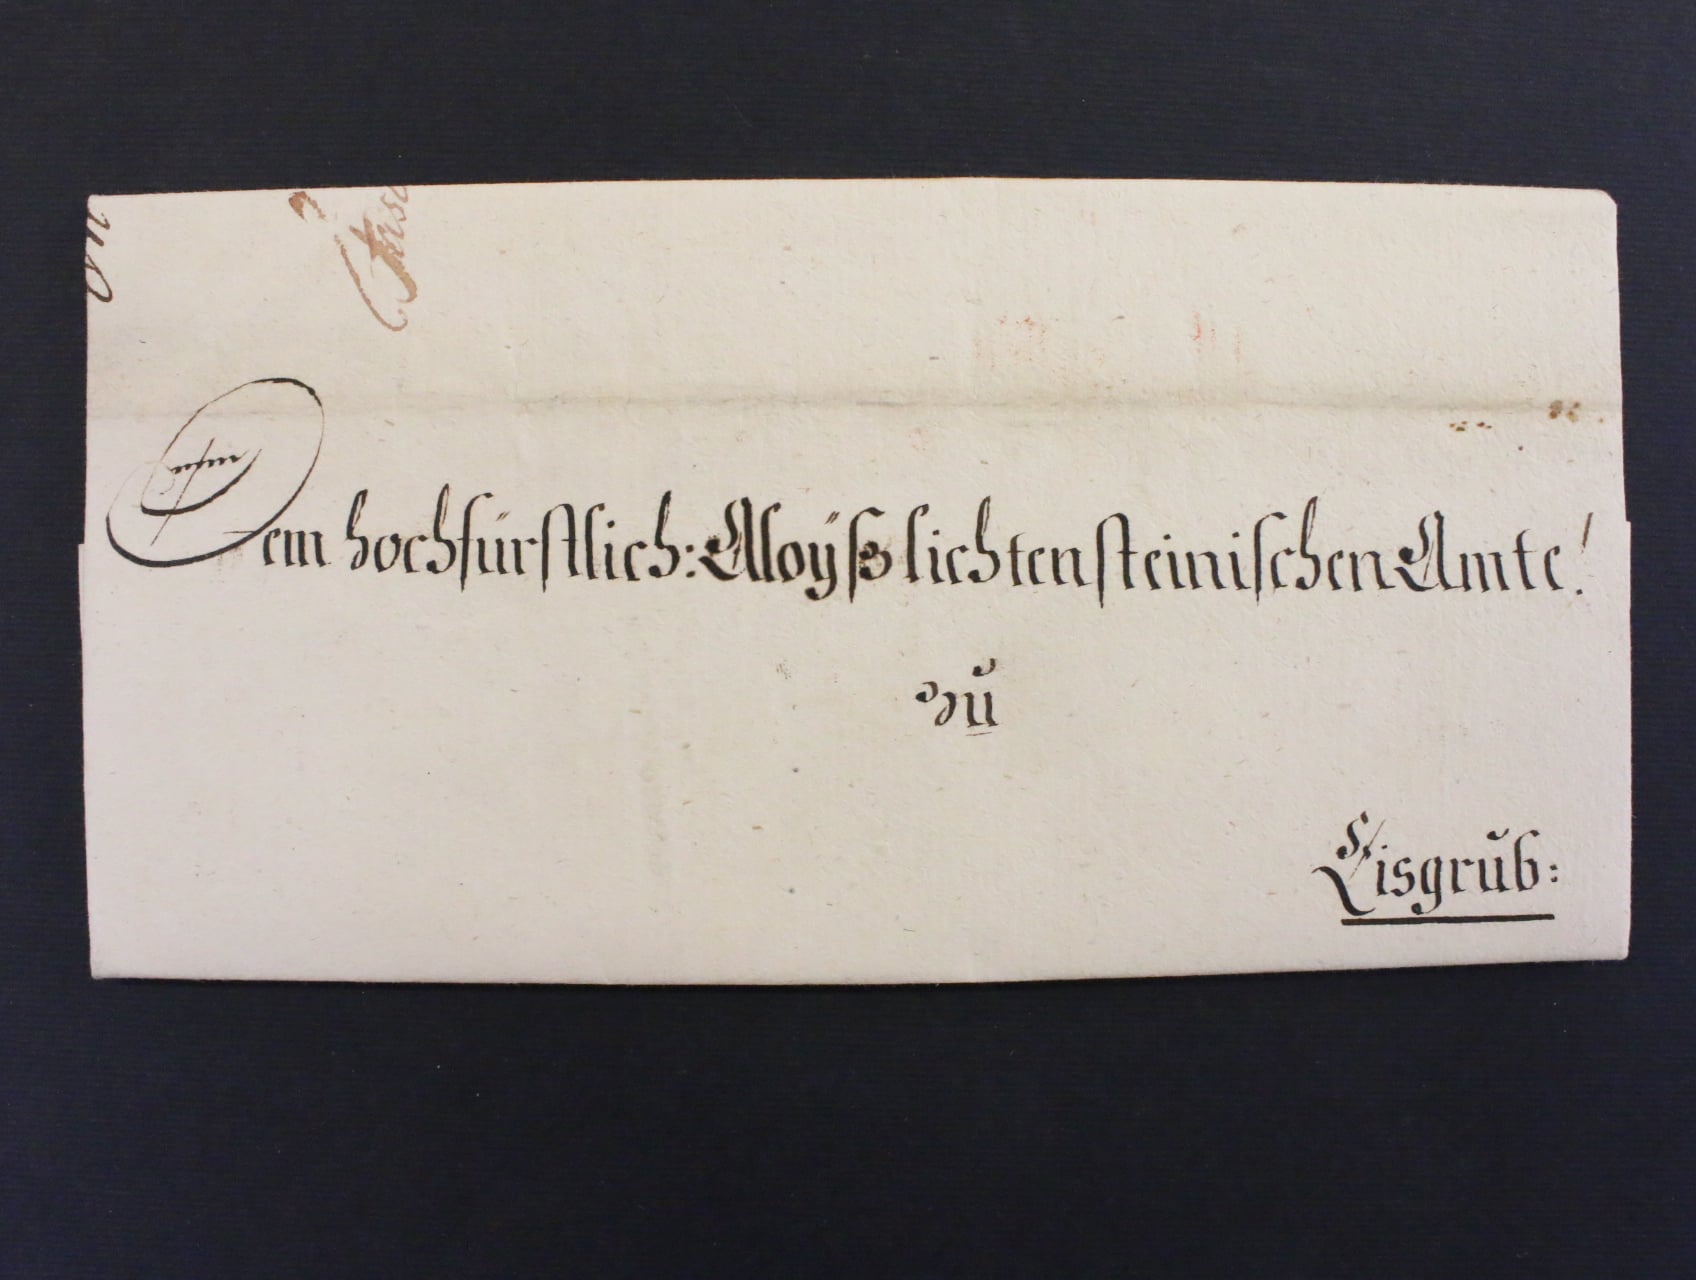 Dem hochfürstlich: Aloÿß lichtensteinischen Amte!
zu
Eisgrub: